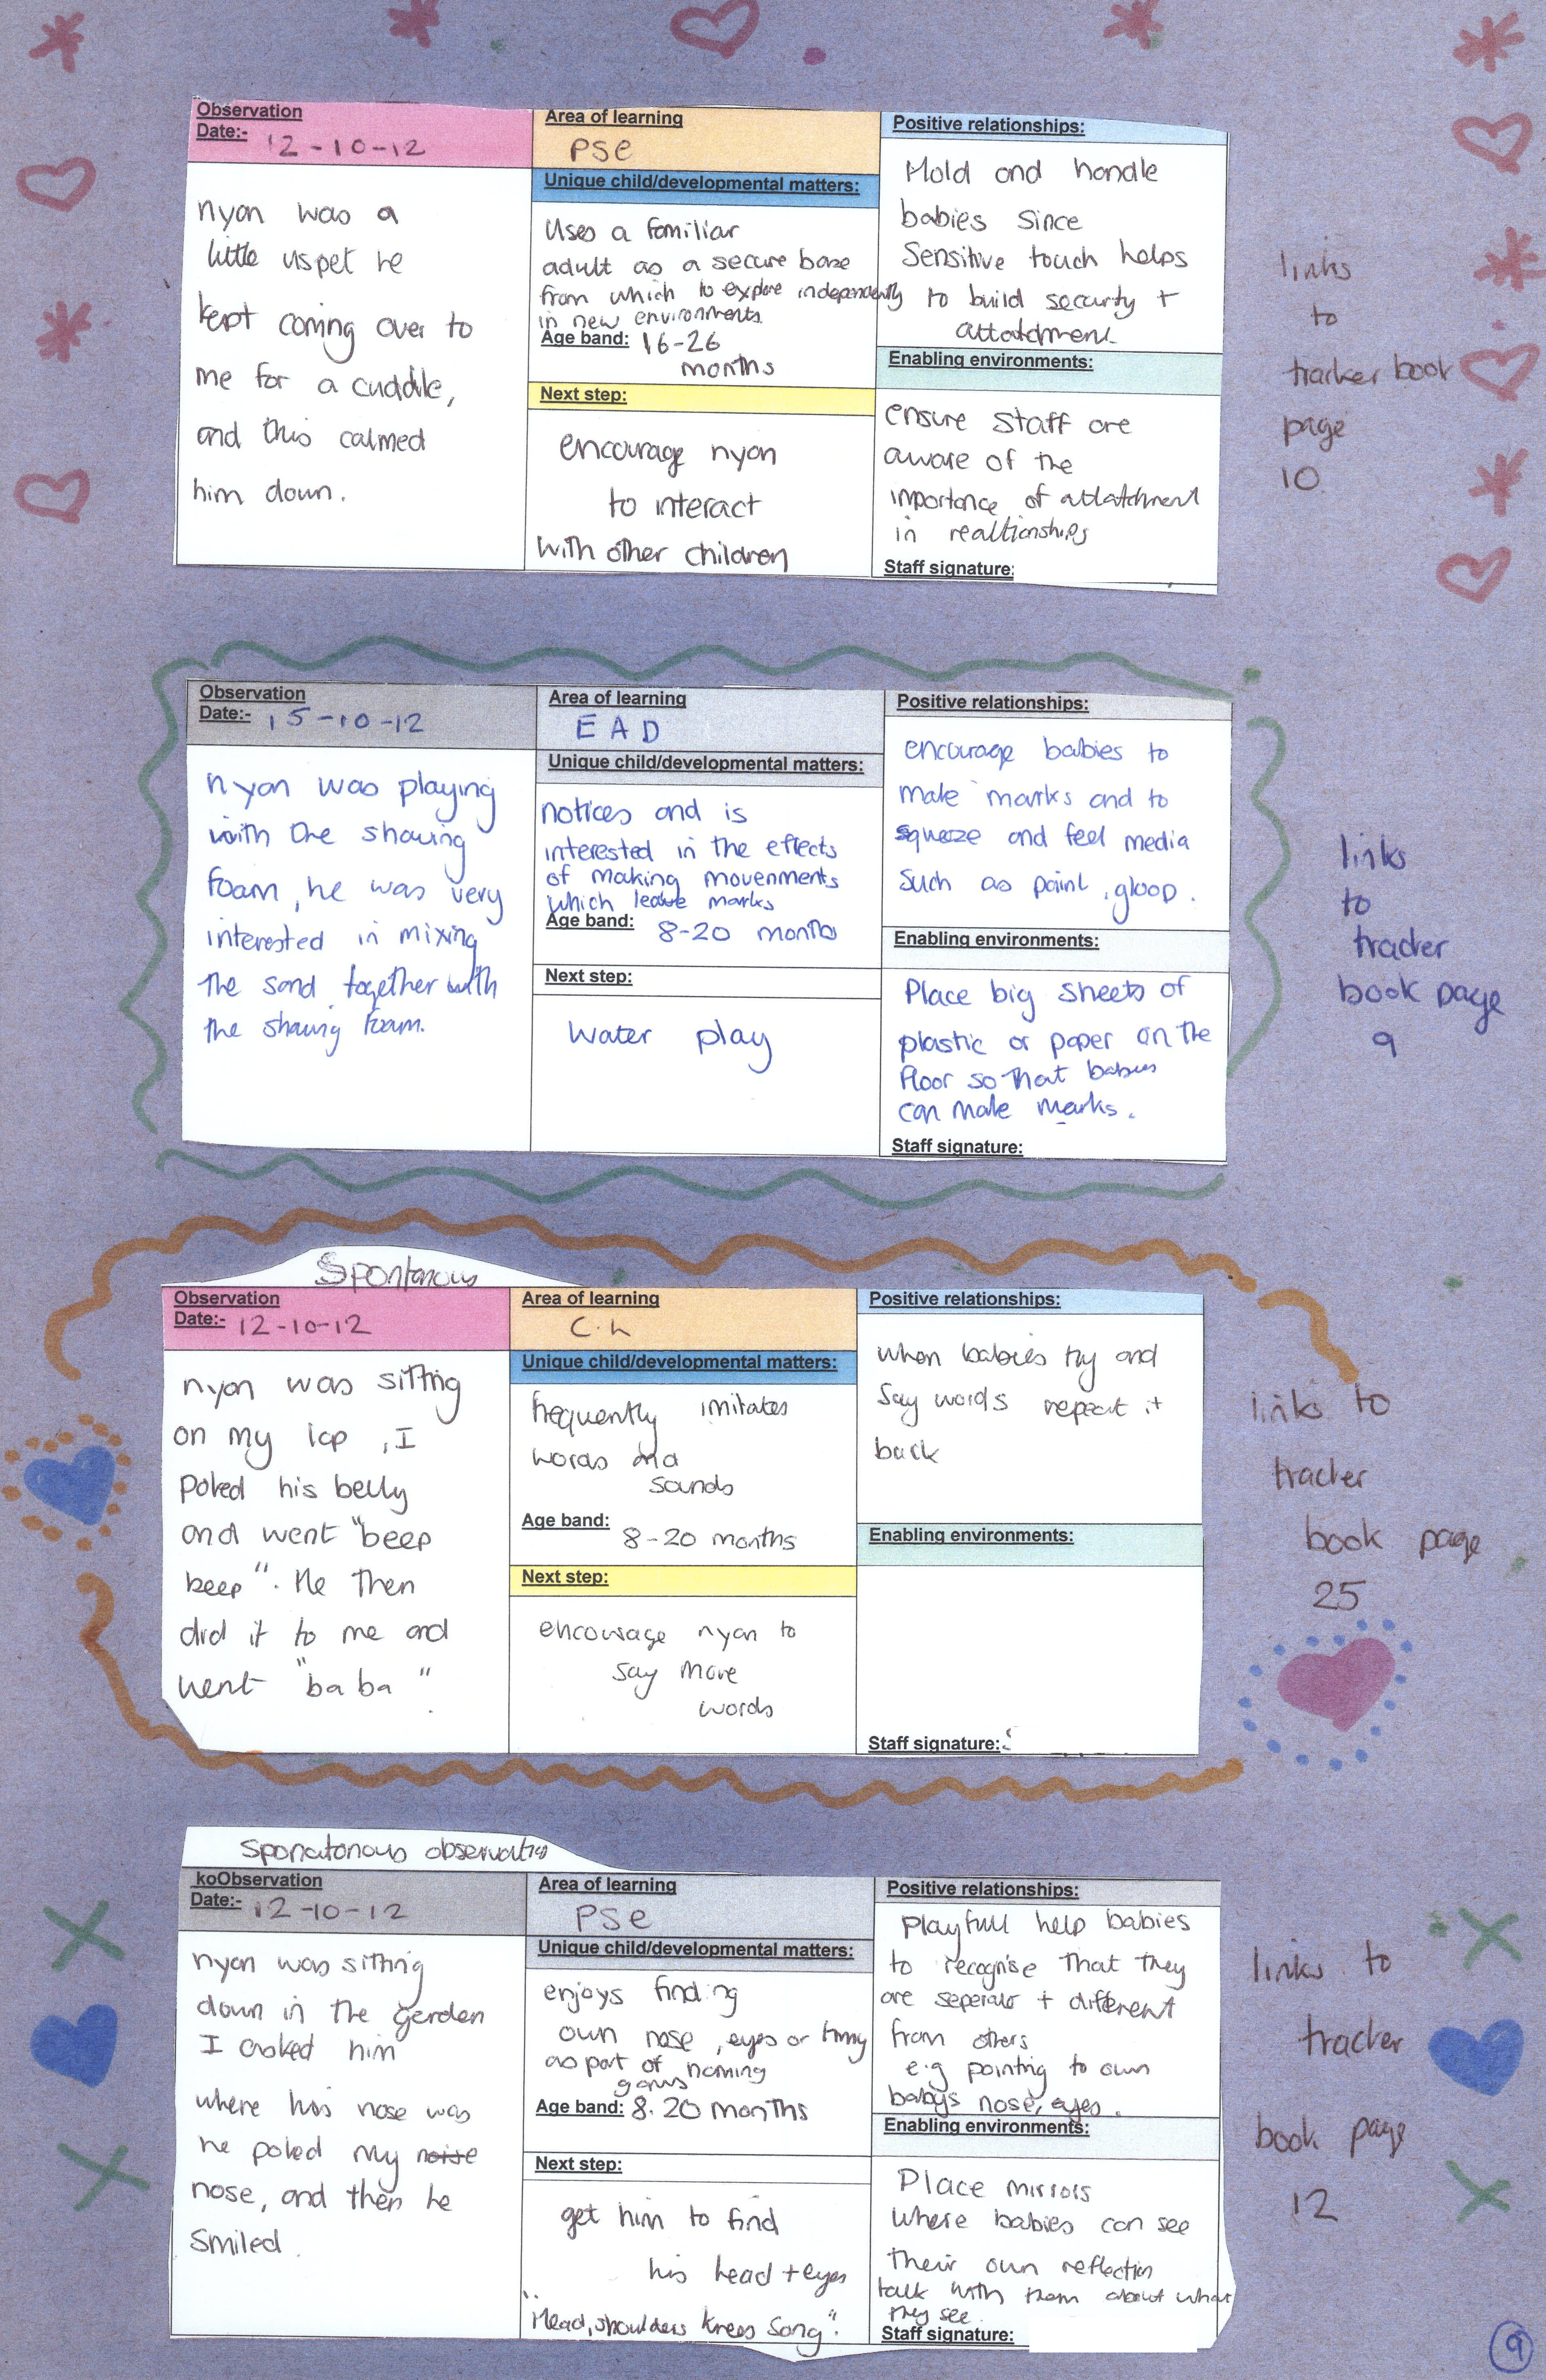 Observation
Date:- 12-10-12
nyan was a
little uspet he
kept coming over to
me for a cuddle,
and this calmed
him down.
Area of learning
PSE
Unique child/developmental matters:
Uses a familiar
adult as a secure base
from which to explore independently
in new environments.
Age band: 16-26
months
Next step:
encourage nyan
to interact
with other children
Positive relationships:
Hold and handle
babies since
Sensitive touch helps
to build security +
attatchment.
Enabling environments:
ensure staff are
aware of the
importance of attatchment
in realtionships
Staff signature:
links
to
tracker book
page
10
Observation
Date:- 15-10-12
nyan was playing
with the shaving
foam, he was very
interested in mixing
the sand together with
the shaving foam.
Area of learning
EAD
Unique child/developmental matters:
notices and is
interested in the effects
of making movenments
which leave marks
Age band: 8-20 months
Next step:
water play
Positive relationships:
encourage babies to
make marks and to
squeeze and feel media
such as paint, gloop.
Enabling environments:
Place big sheets of
plastic or paper on the
floor so that babies
can make marks.
Staff signature:
links
to
tracker
book page
9
Spontanous
Observation
Date:- 12-10-12
nyan was sitting
on my lap, I
poked his belly
and went "beep
beep". He then
did it to me and
went "ba ba".
Area of learning
C.L
Unique child/developmental matters:
frequently imitates
words and
sounds
Age band: 8-20 months
Next step:
encourage nyan to
say more
words
Positive relationships:
when babies try and
say words repeat it
back
Enabling environments:
Staff signature:
links to
tracker
book page
25
Sponatonous observation
koObservation
Date:- 12-10-12
nyan was sitting
down in the garden
I asked him
where his nose was
he poked my noise
nose, and then he
smiled.
Area of learning
PSE
Unique child/developmental matters:
enjoys finding
own nose, eyes or tummy
as part of naming
games
Age band: 8-20 months
Next step:
get him to find
his head + eyes
"Head, shoulders knees song".
Positive relationships:
Playfull help babies
to recognise that they
are seperate + different
from others
e.g pointing to own
babys nose, eyes.
Enabling environments:
Place mirrors
where babies can see
their own reflection
talk with them about what
they see.
Staff signature:
links to
tracker
book page
12
9